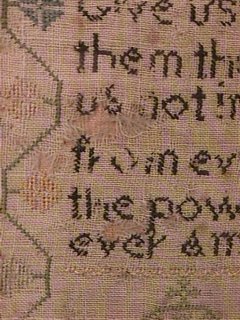 Give us
them th
us not in
from ev
the pow
ever Am